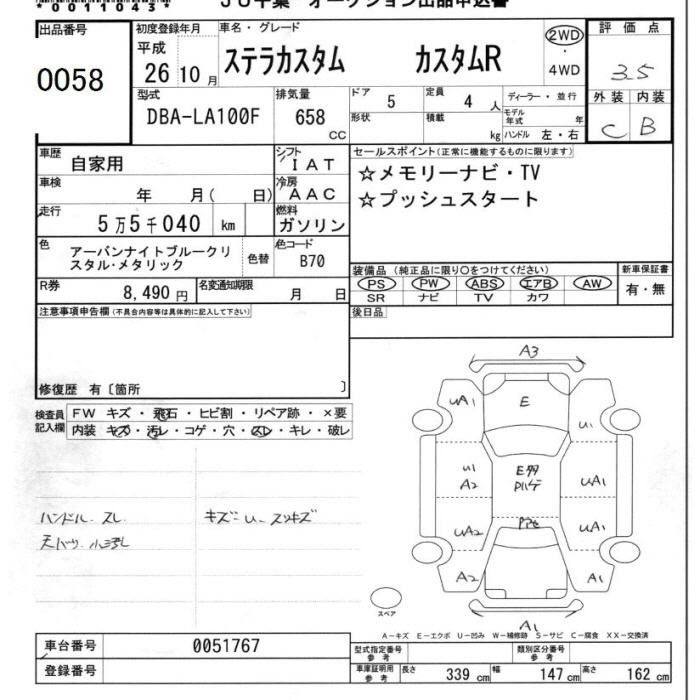 *0011043*
JU千葉 オークション出品申込書
出品番号 初度登録年月 車名・グレード 2WD・4WD 評価点
0058 平成 26 10月 ステラカスタム カスタムR 3.5
型式 排気量 ドア 定員 ディーラー・並行 外装 内装
DBA-LA100F 658 CC 5 4 人 モデル年式 年 C B
形状 積載 kg ハンドル 左・右
車歴 自家用 シフト IAT セールスポイント(正常に機能するものに限ります)
車検 年 月( 日) 冷房 AAC ☆メモリーナビ・TV
☆プッシュスタート
走行 5万5千040 km 燃料 ガソリン
色 アーバンナイトブルークリスタル・メタリック 色替 色コード B70
装備品(純正品に限り○をつけてください) 新車保証書
PS PW ABS エアB AW 有・無
SR ナビ TV カワ
R券 8,490円 名変通知期限 月 日
注意事項申告欄(不具合内容等は具体的に記入して下さい) 後日品
修復歴 有〔箇所 〕
検査員記入欄 FW キズ・飛石・ヒビ割・リペア跡・×要
内装 キズ・汚レ・コゲ・穴・スレ・キレ・破レ
ハンドル スレ
キズ=U スリキズ
A3
UA1 E U1
U1 A2 UA1
UA2 UA1
A2 A1
スペア A1
A-キズ E-エクボ U-凹み W-補修跡 S-サビ C-腐食 XX-交換済
車台番号 0051767 型式指定番号 参考 類別区分番号 参考
登録番号 車庫証明用 参考 長さ 339 cm 幅 147 cm 高さ 162 cm